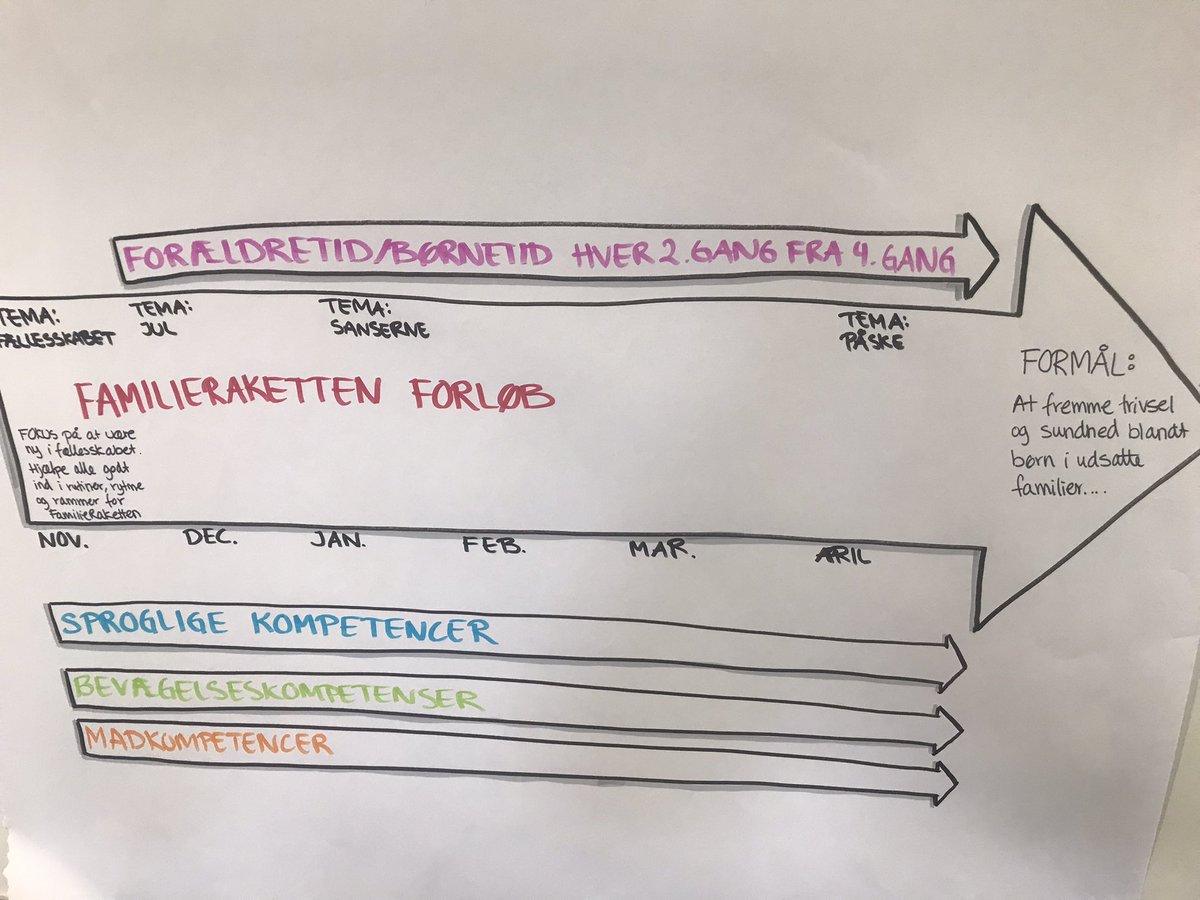 FORÆLDRETID/BØRNETID HVER 2. GANG FRA 4. GANG
TEMA:
FÆLLESSKABET
TEMA:
JUL
TEMA:
SANSERNE
TEMA:
PÅSKE
FAMILIERAKETTEN FORLØB
FOKUS på at være
ny i fællesskabet.
Hjælpe alle godt
ind i rutiner, rytme
og rammer for
FamilieRaketten
FORMÅL:
At fremme trivsel
og sundhed blandt
børn i udsatte
familier....
NOV.
DEC.
JAN.
FEB.
MAR.
APRIL
SPROGLIGE KOMPETENCER
BEVÆGELSESKOMPETENSER
MADKOMPETENCER